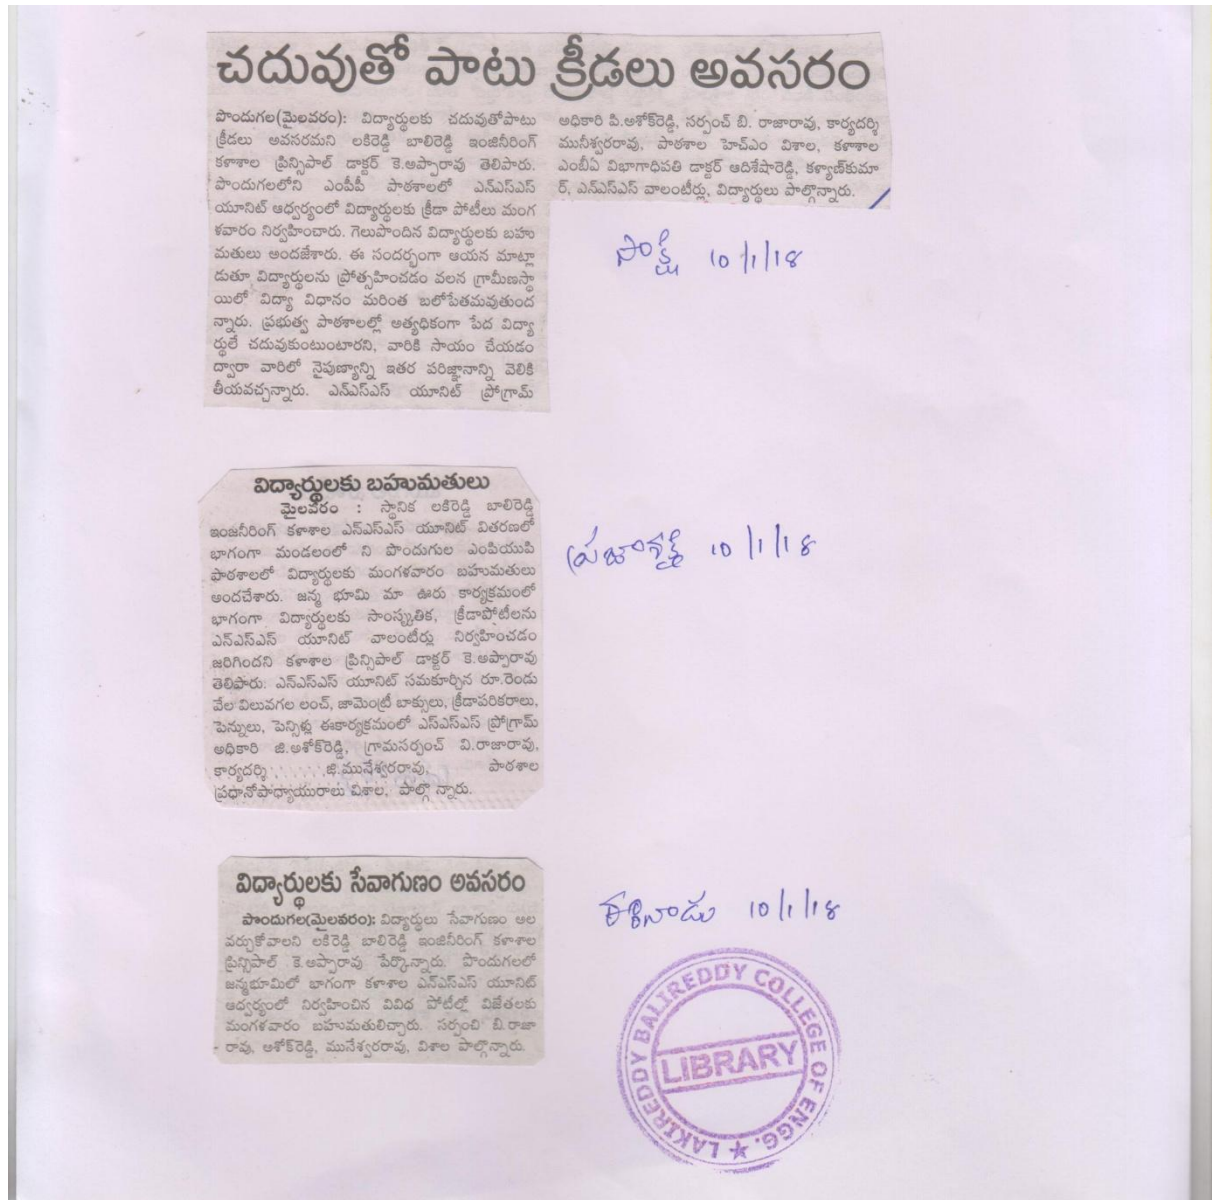 చదువుతో పాటు క్రీడలు అవసరం
పొందుగల(మైలవరం): విద్యార్థులకు చదువుతోపాటు
క్రీడలు అవసరమని లకిరెడ్డి బాలిరెడ్డి ఇంజినీరింగ్
కళాశాల ప్రిన్సిపాల్ డాక్టర్ కె.అప్పారావు తెలిపారు.
పొందుగలలోని ఎంపీపీ పాఠశాలలో ఎన్ఎస్ఎస్
యూనిట్ ఆధ్వర్యంలో విద్యార్థులకు క్రీడా పోటీలు మంగ
ళవారం నిర్వహించారు. గెలుపొందిన విద్యార్థులకు బహు
మతులు అందజేశారు. ఈ సందర్భంగా ఆయన మాట్లా
డుతూ విద్యార్థులను ప్రోత్సహించడం వలన గ్రామీణస్థా
యిలో విద్యా విధానం మరింత బలోపేతమవుతుంద
న్నారు. ప్రభుత్వ పాఠశాలల్లో అత్యధికంగా పేద విద్యా
ర్థులే చదువుకుంటుంటారని, వారికి సాయం చేయడం
ద్వారా వారిలో నైపుణ్యాన్ని ఇతర పరిజ్ఞానాన్ని వెలికి
తీయవచ్చన్నారు. ఎన్ఎస్ఎస్ యూనిట్ ప్రోగ్రామ్
అధికారి పి.అశోక్‌రెడ్డి, సర్పంచ్ బి. రాజారావు, కార్యదర్శి
మునీశ్వరరావు, పాఠశాల హెచ్ఎం విశాల, కళాశాల
ఎంబీఏ విభాగాధిపతి డాక్టర్ ఆదిశేషారెడ్డి, కళ్యాణ్‌కుమా
ర్, ఎన్ఎస్ఎస్ వాలంటీర్లు, విద్యార్థులు పాల్గొన్నారు.
సాక్షి 10/1/18
విద్యార్థులకు బహుమతులు
మైలవరం : స్థానిక లకిరెడ్డి బాలిరెడ్డి
ఇంజనీరింగ్ కళాశాల ఎన్ఎస్ఎస్ యూనిట్ వితరణలో
భాగంగా మండలంలో ని పొందుగుల ఎంపియుపి
పాఠశాలలో విద్యార్థులకు మంగళవారం బహుమతులు
అందచేశారు. జన్మ భూమి మా ఊరు కార్యక్రమంలో
భాగంగా విద్యార్థులకు సాంస్కృతిక, క్రీడాపోటీలను
ఎన్ఎస్ఎస్ యూనిట్ వాలంటీర్లు నిర్వహించడం
జరిగిందని కళాశాల ప్రిన్సిపాల్ డాక్టర్ కె.అప్పారావు
తెలిపారు. ఎన్ఎస్ఎస్ యూనిట్ సమకూర్చిన రూ.రెండు
వేల విలువగల లంచ్, జామెంట్రీ బాక్సులు, క్రీడాపరికరాలు,
పెన్నులు, పెన్సిళ్లు ఈకార్యక్రమంలో ఎస్ఎస్ఎస్ ప్రోగ్రామ్
అధికారి జి.అశోక్‌రెడ్డి, గ్రామసర్పంచ్ వి.రాజారావు,
కార్యదర్శి జి.మునేశ్వరరావు, పాఠశాల
ప్రధానోపాధ్యాయురాలు విశాల, పాల్గొ న్నారు.
ప్రజాశక్తి 10/1/18
విద్యార్థులకు సేవాగుణం అవసరం
పొందుగల(మైలవరం): విద్యార్థులు సేవాగుణం అల
వర్చుకోవాలని లకిరెడ్డి బాలిరెడ్డి ఇంజినీరింగ్ కళాశాల
ప్రిన్సిపాల్ కె.అప్పారావు పేర్కొన్నారు. పొందుగలలో
జన్మభూమిలో భాగంగా కళాశాల ఎన్ఎస్ఎస్ యూనిట్
ఆధ్వర్యంలో నిర్వహించిన వివిధ పోటీల్లో విజేతలకు
మంగళవారం బహుమతులిచ్చారు. సర్పంచి బి.రాజా
రావు, అశోక్‌రెడ్డి, మునేశ్వరరావు, విశాల పాల్గొన్నారు.
ఈనాడు 10/1/18
LAKIREDDY BALIREDDY COLLEGE OF ENGG.
LIBRARY